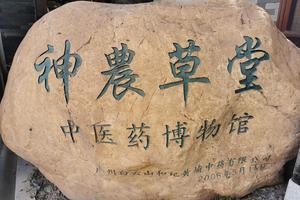 神農草堂
中医药博物馆
广州白云山和记黄埔中药有限公司
2006年3月18日